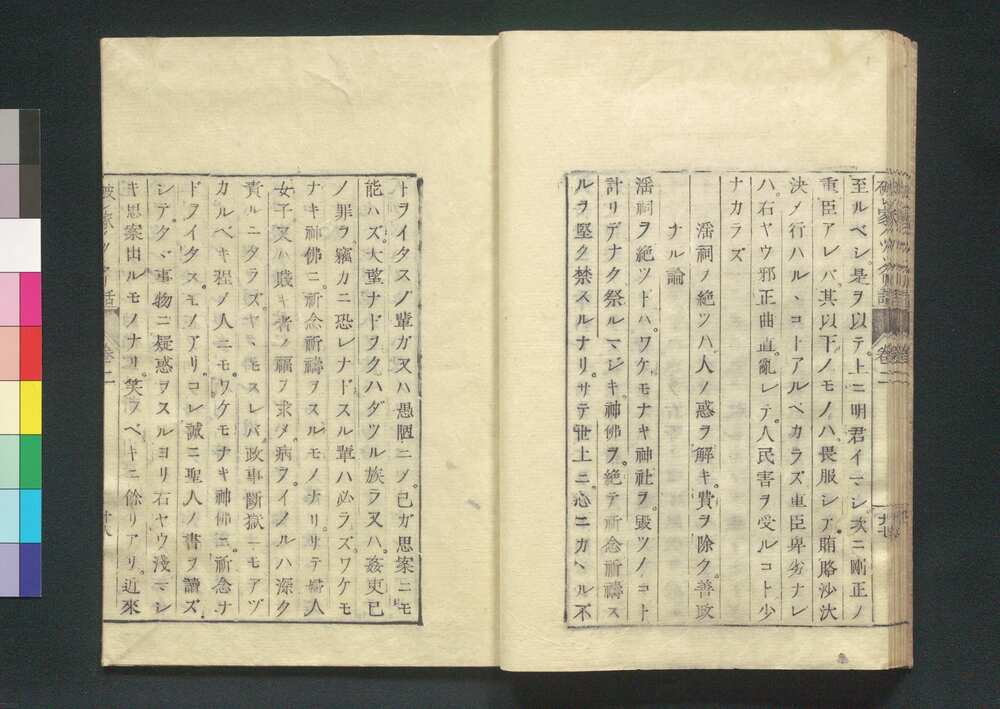 至ルベシ。是ヲ以テ。上ニ明君イマシ。次ニ剛正ノ
重臣アレバ。其以下ノモノハ畏服シテ。賄賂沙汰
決メ行ハルヽコトアルベカラズ重臣卑劣ナレ
ハ。右ヤウ邪正曲直。亂レテ。人民害ヲ受ルコト少
ナカラズ
淫祠ノ絶ツハ。人ノ惑ヲ解キ。費ヲ除ク。善政
ナル論
淫祠ヲ絶ツトハ。ワケモナキ神社ヲ。毀ツノコト
計リデナク祭ルマジキ神佛ヲ。絶テ祈念祈禱ス
ルヲ堅ク禁スルナリ。サテ世上ニ。心ニカヘル不
卷二
廿七
トヲイタスノ輩ガ又ハ愚陋ニメ。己ガ思案ニモ
能ハズ。大望ナドヲクハダツル族ラ又ハ。姦吏己
ノ罪ヲ。竊カニ恐レナドスル輩ハ必ラズ。ワケモ
ナキ神佛ニ。祈念祈禱ヲスルモノナリ。サテ婦人
女子又ハ賤キ者ノ福ヲ求メ。病ヲイノルハ深ク
責ルニタラズヤヽモスレバ。政事斷獄ニモアヅ
カルベキ程ノ人ニモ。ワケモナキ神佛ニ。祈念ナ
ドヲイタス。モノアリ。コレ誠ニ聖人ノ書ヲ讀ズ
シテ。タヾ事物ニ疑惑ヲスルヨリ右ヤウ淺マシ
キ思案出ルモノナリ。笑フベキニ餘リアリ。近來
卷二
廿八